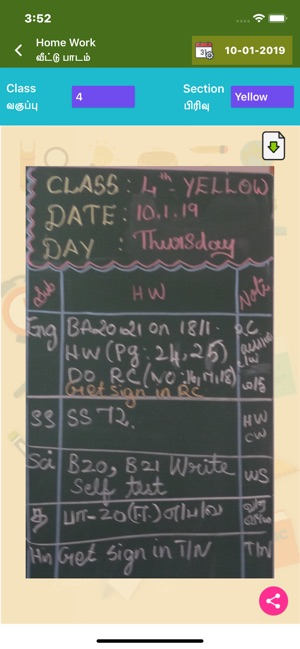 3:52
Home Work
வீட்டு பாடம்
10-01-2019
Class
வகுப்பு
4
Section
பிரிவு
Yellow
CLASS : 4th - YELLOW
DATE : 10.1.19
DAY : Thursday
Sub
HW
Note
Eng
BA20,21 on 18/1.
RC
HW (Pg: 24,25)
C/W
DO RC (NO: 16,17,18)
Get sign in RC
SS
SS 72.
HW
CW
Sci
B20, B21 Write
Self test
WS
த
பா-20
Hn
Get sign in T/N
T/N